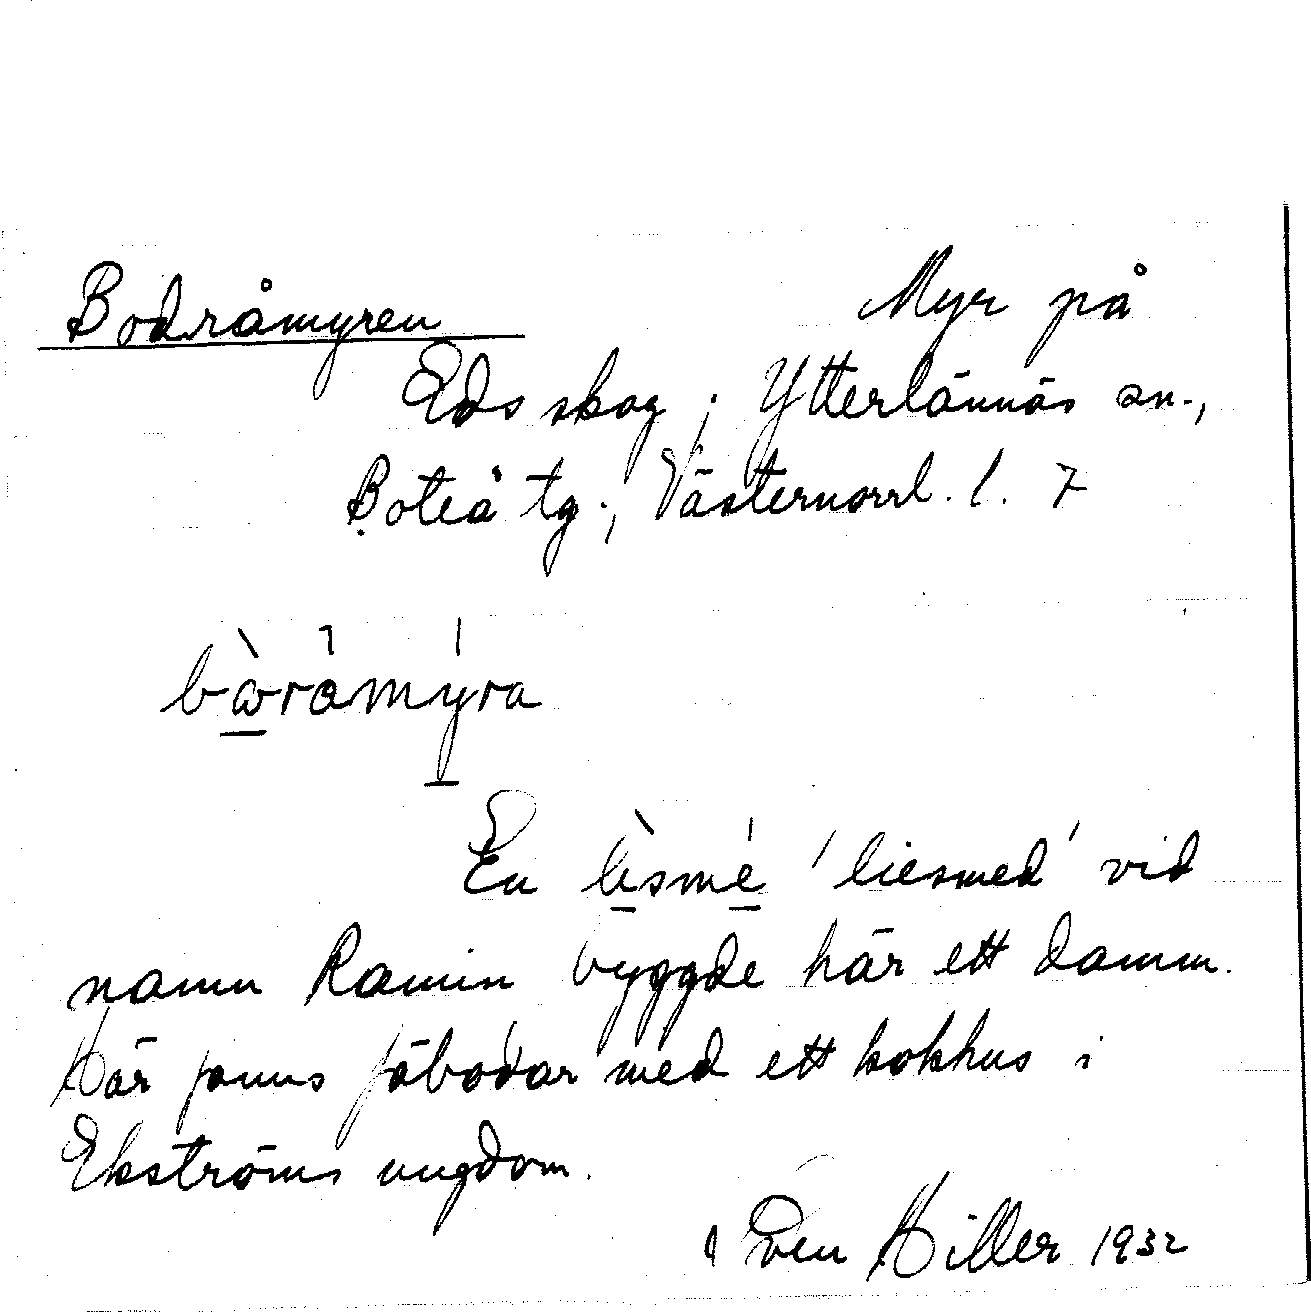 Bodråmyren Myr på
Eds skog; Ytterlännäs sn.,
Boteå tg.; Västernorrl. l. 7
bὼråmýra
En lìsmé 'liesmed' vid
namn Ramin byggde här ett damm.
Här fanns fäbodar med ett kokhus i
Ekströms ungdom.
Sven Hiller 1932